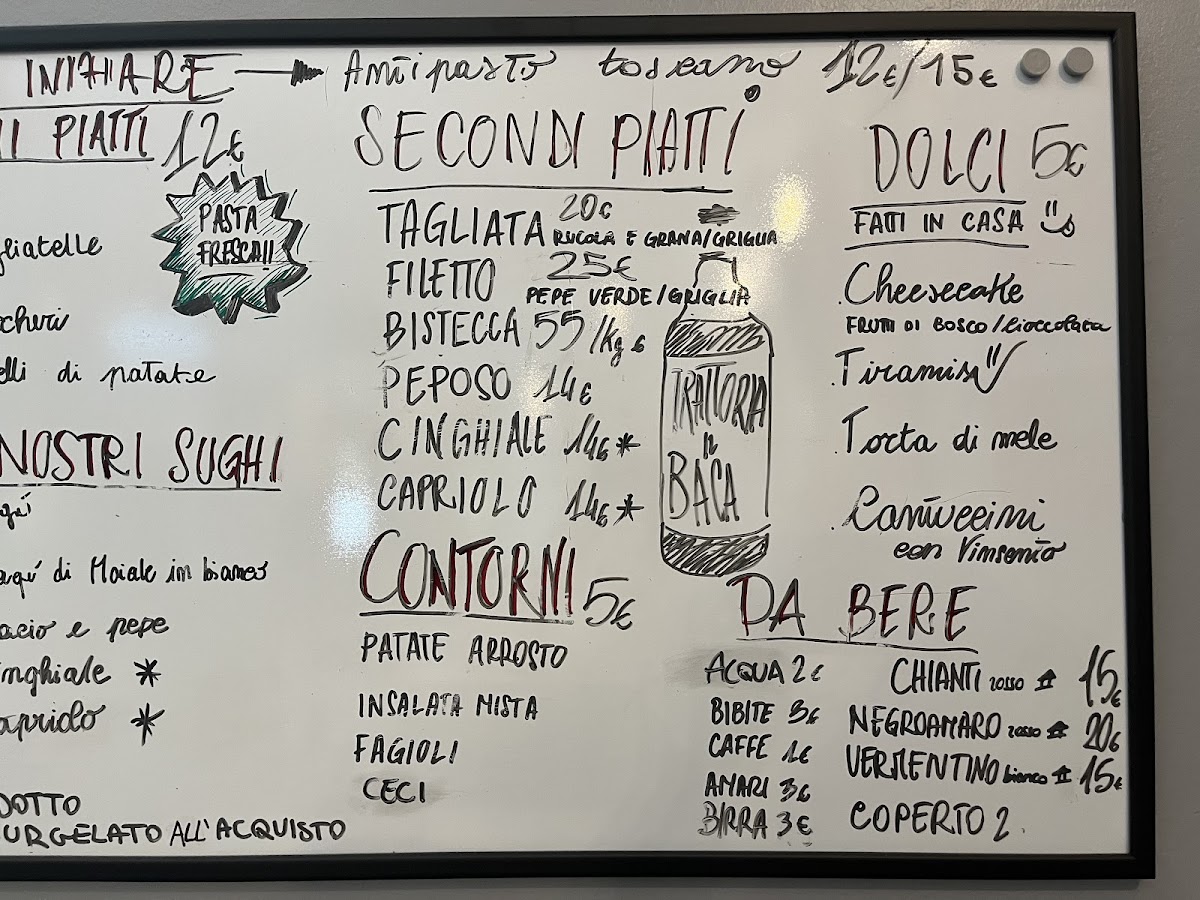 INIZIARE → Antipasto toscano 12€/15€
I PIATTI 12€
PASTA
FRESCA!!
gliatelle
ccheri
elli di patate
NOSTRI SUGHI
agú
agú di Maiale in bianco
acio e pepe
inghiale *
apriolo *
DOTTO
URGELATO ALL'ACQUISTO
SECONDI PIATTI
TAGLIATA 20€
RUCOLA E GRANA/GRIGLIA
FILETTO 25€
PEPE VERDE/GRIGLIA
BISTECCA 55/kg €
PEPOSO 14€
CINGHIALE 14€ *
CAPRIOLO 14€ *
TRATTORIA
IL
BACA
CONTORNI 5€
PATATE ARROSTO
INSALATA MISTA
FAGIOLI
CECI
DOLCI 5€
FATTI IN CASA
Cheesecake
FRUTTI DI BOSCO/Cioccolata
Tiramisù
Torta di mele
Cantuccini
con Vinsanto
DA BERE
ACQUA 2€
BIBITE 3€
CAFFE 1€
AMARI 3€
BIRRA 3€
CHIANTI rosso 15€
NEGROAMARO rosso 20€
VERMENTINO bianco 15€
COPERTO 2